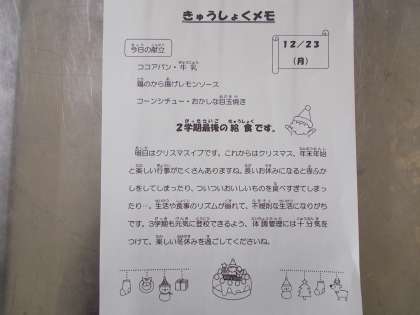 きゅうしょくメモ
今日の献立
12/23
（月）
ココアパン・牛乳
鶏のから揚げレモンソース
コーンシチュー・おかしな目玉焼き
2学期最後の給食です。
明日はクリスマスイブです。これからはクリスマス、年末年始
と楽しい行事がたくさんありますね。長いお休みになると夜ふか
しをしてしまったり、ついついおいしいものを食べすぎてしまっ
たり…。生活や食事のリズムが崩れて、不規則な生活になりがち
です。3学期も元気に登校できるよう、体調管理には十分気を
つけて、楽しい冬休みを過ごしてくださいね。